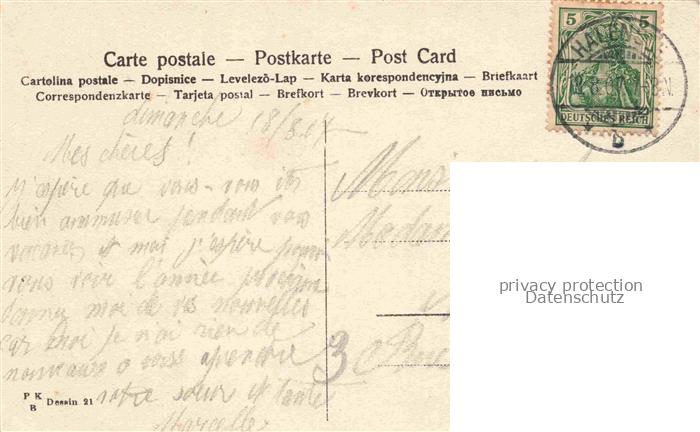 Carte postale — Postkarte — Post Card
Cartolina postale — Dopisnice — Levelező-Lap — Karta korespondencyjna — Briefkaart
Correspondenzkarte — Tarjeta postal — Brefkort — Brevkort — Открытое письмо
5 5
DEUTSCHES REICH
HAGEN
b
dimanche 18/8.07
Mes chères!
J'espère que vous vous êtes
bien amuser pendant vos
vacances et moi j'espère pouvoir
vous voir l'année prochaine
donner moi de vos nouvelles
car moi je n'ai rien de
nouveaux a vous apprendre
votre sœur et tante
Marcelle
Monsi
Madam
3
privacy protection
Datenschutz
P K
B
Dessin 21